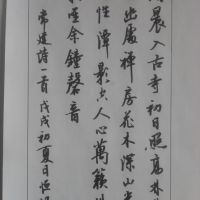 晨入古寺初日照高林
幽處禪房花木深山光
性潭影空人心萬籟
惟余鐘磬音
常建詩一首戊戌初夏日恒